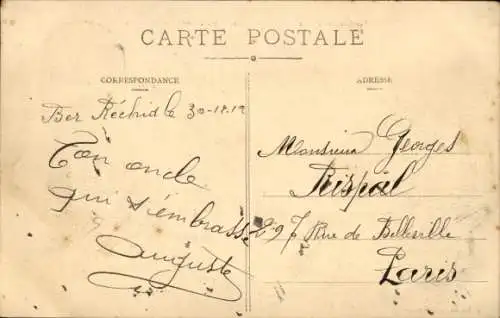 CARTE POSTALE
CORRESPONDANCE
ADRESSE
Ber Réchid le 30-12-12
Ton oncle
qui t'embrasse
Auguste
Monsieur Georges
Rispal
297 Rue de Belleville
Paris